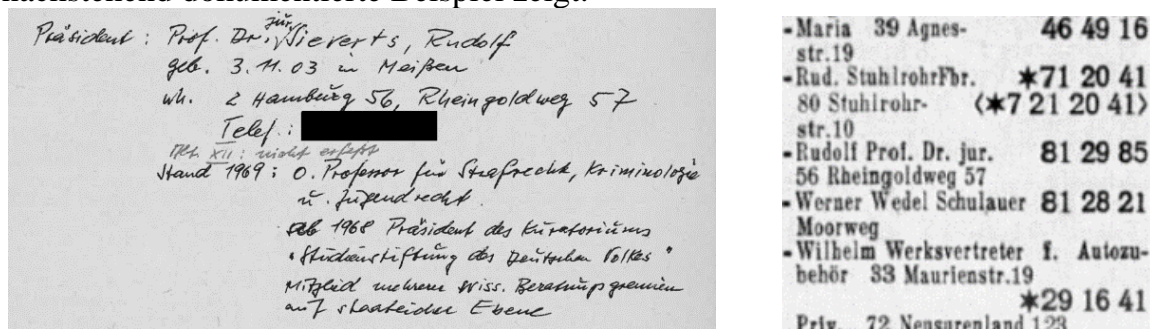 nachstehend dokumentierte Beispiel zeigt.
Präsident : Prof. Dr. jur. Sieverts, Rudolf
geb. 3.11.03 in Meißen
wh. 2 Hamburg 56, Rheingoldweg 57
Telef. :
Abt. XII : nicht erfaßt
Stand 1969 : o. Professor für Strafrecht, Kriminologie
u. Jugendrecht.
ab 1968 Präsident des Kuratoriums
"Studienstiftung des Deutschen Volkes"
Mitglied mehrerer wiss. Beratungsgremien
auf staatlicher Ebene
-Maria 39 Agnes- 46 49 16
str.19
-Rud. StuhlrohrFbr. ✱71 20 41
80 Stuhlrohr- ⟨✱7 21 20 41⟩
str.10
-Rudolf Prof. Dr. jur. 81 29 85
56 Rheingoldweg 57
-Werner Wedel Schulauer 81 28 21
Moorweg
-Wilhelm Werksvertreter f. Autozu-
behör 33 Maurienstr.19
✱29 16 41
Priv. 72 Nensurenland 123